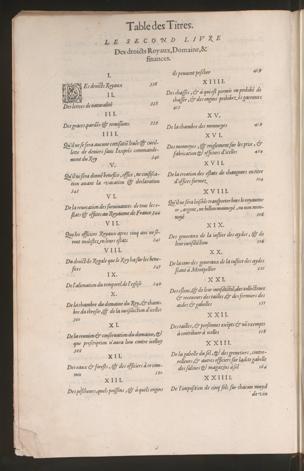 Table des Titres.
LE SECOND LIVRE
Des droicts Royaux, Domaine, &
finances.
I.
Es droicts Royaux
II.
Des lettres de naturalité
III.
Des graces, pardõs & remissions
IIII.
Qu'il ne se fera aucune
deniers sans l'exprés commande-
ment du Roy
V.
Qu'il ne sera donné benefice, office, ne confisca-
tion avant la vacation & declaration
VI.
De la revocation des survivances de tous les e-
stats & offices au Royaume de France 244
VII.
Que les officiers Royaux apres cinq ans ne se-
ront molestez, en leurs estats
VIII.
Du droict de Regale que le Roy ha sur les bene-
fices
IX.
De l'alienation du temporel de l'eglise
X.
De la chambre du domaine du Roy, & cham-
bre du thresor, & de la jurisdiction d'icelles
XI.
De la reunion & conservation du domaine, &
que prescription n'aura lieu contre iceluy
XII.
Des eaux & forests, & des officiers à ce com-
mis
XIII.
Des pescheurs, quels poissons, & à quels engins
ils peuvent pescher
XIIII.
Des chasses, & à qui est permis ou prohibé de
chasser, & des engins prohibez,
XV.
De la chambre des monnoyes
XVI.
Des monnoyes, & reglement sur les pris, &
fabrication & officiers d'icelles
XVII.
De la creation des estats de changeurs en titre
d'office formez
XVIII.
Qu'il ne sera loisible transporter hors le royaume
or, argent, ne billon monnoyé, ou non mon-
noyé
XIX.
Des generaux de la justice des aydes, & de
leur jurisdiction
XX.
De la cour des generaux de la justice des aydes
seant à Montpellier
XXI.
Des esleus, & de leur jurisdiction, des collecteurs
& receveurs des tailles & des fermiers des
aides & gabelles
XXII.
Des tailles, & personnes exẽpts & nõ exempts
à contribuer à icelles
XXIII.
De la gabelle du sel, & des grenetiers, contre-
rolleurs & autres officiers sur ladite gabelle
des salines & magazins à sel
XXIIII.
De l'imposition de cinq sols sur chacun muyd
de vin